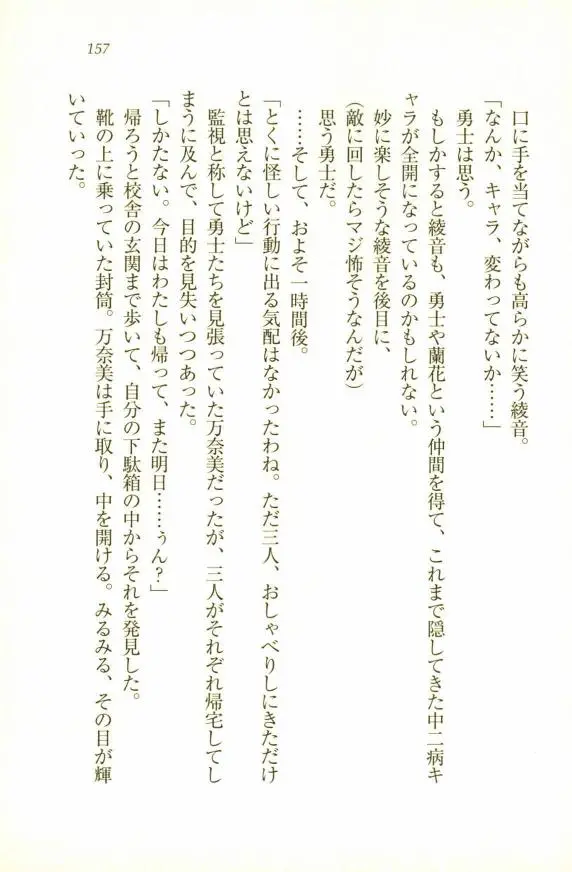 157
口に手を当てながらも高らかに笑う綾音。
「なんか、キャラ、変わってないか……」
勇士は思う。
もしかすると綾音も、勇士や蘭花という仲間を得て、これまで隠してきた中二病キ
ャラが全開になっているのかもしれない。
妙に楽しそうな綾音を後目に、
(敵に回したらマジ怖そうなんだが)
思う勇士だ。
……そして、およそ一時間後。
「とくに怪しい行動に出る気配はなかったわね。ただ三人、おしゃべりしにきただけ
とは思えないけど」
監視と称して勇士たちを見張っていた万奈美だったが、三人がそれぞれ帰宅してし
まうに及んで、目的を見失いつつあった。
「しかたない。今日はわたしも帰って、また明日……ぅん?」
帰ろうと校舎の玄関まで歩いて、自分の下駄箱の中からそれを発見した。
靴の上に乗っていた封筒。万奈美は手に取り、中を開ける。みるみる、その目が輝
いていった。